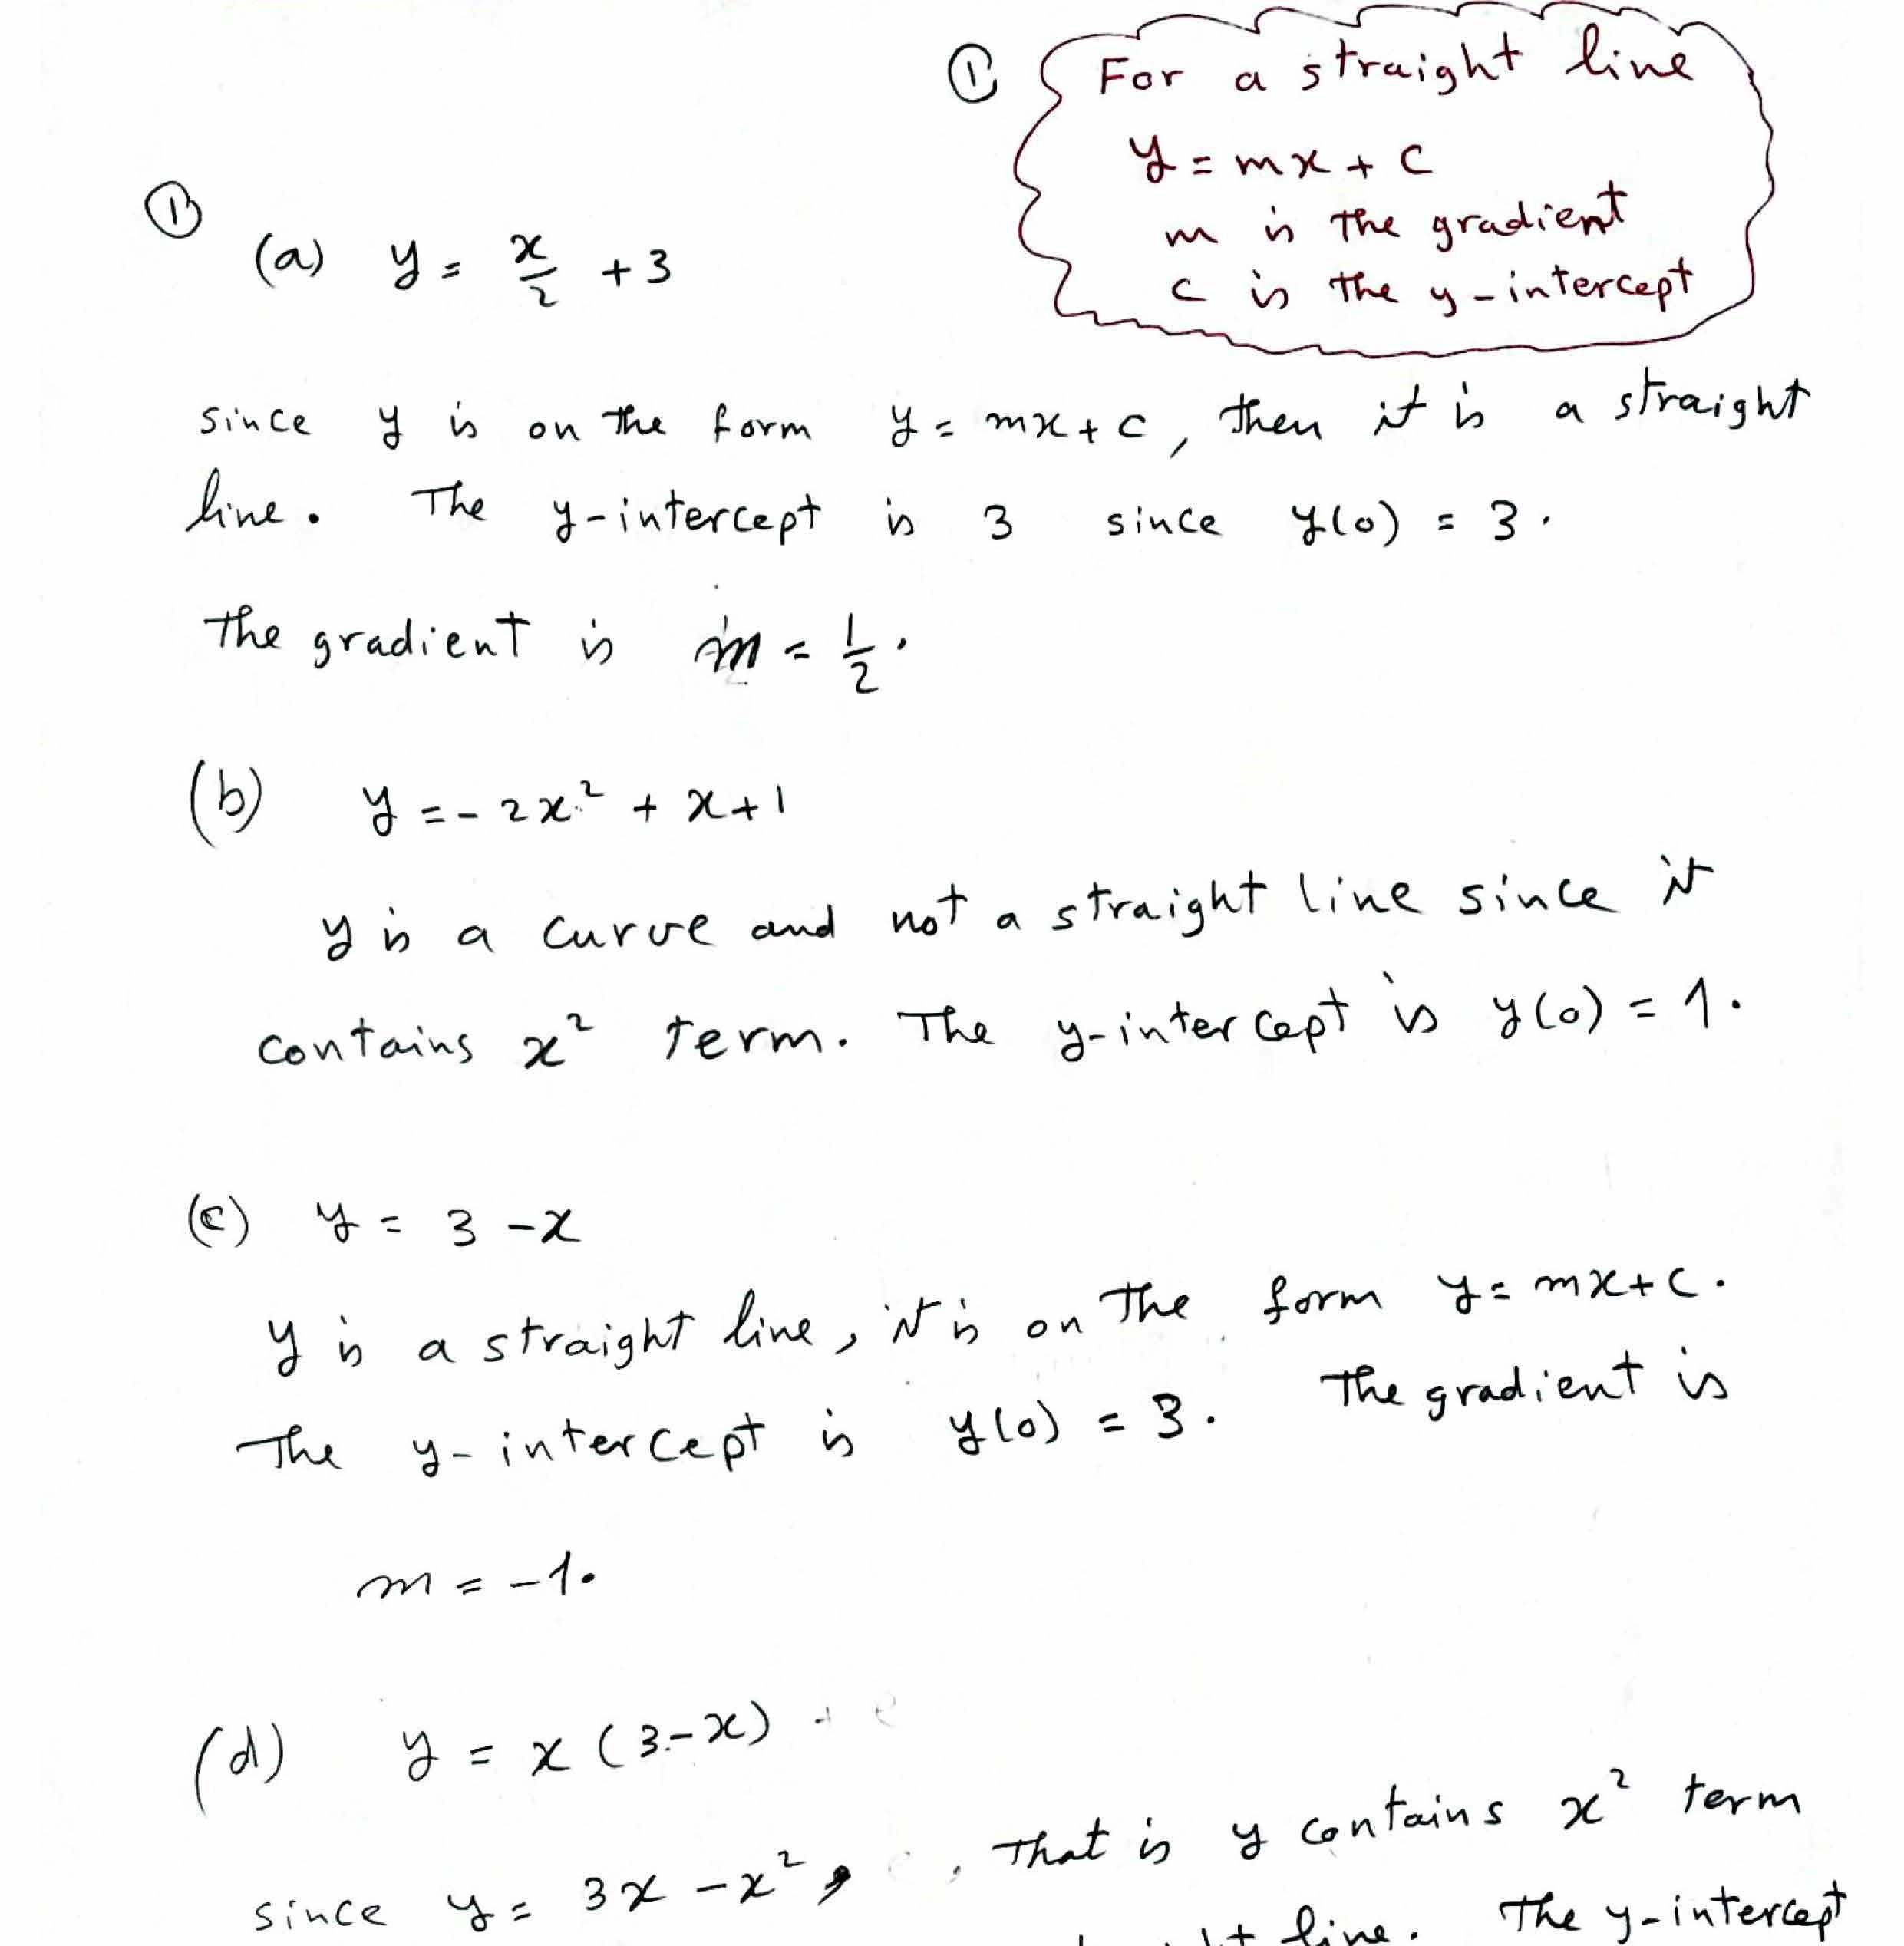 ① For a straight line
y = mx + c
m is the gradient
c is the y-intercept
①
(a) y = x/2 + 3
since y is on the form y = mx + c, then it is a straight
line. The y-intercept is 3 since y(0) = 3.
the gradient is m = 1/2.
(b) y = -2x² + x + 1
y is a curve and not a straight line since it
contains x² term. The y-intercept is y(0) = 1.
(c) y = 3 - x
y is a straight line, it is on the form y = mx + c.
The y-intercept is y(0) = 3. The gradient is
m = -1.
(d) y = x (3 - x)
since y = 3x - x², That is y contains x² term
line. The y-intercept